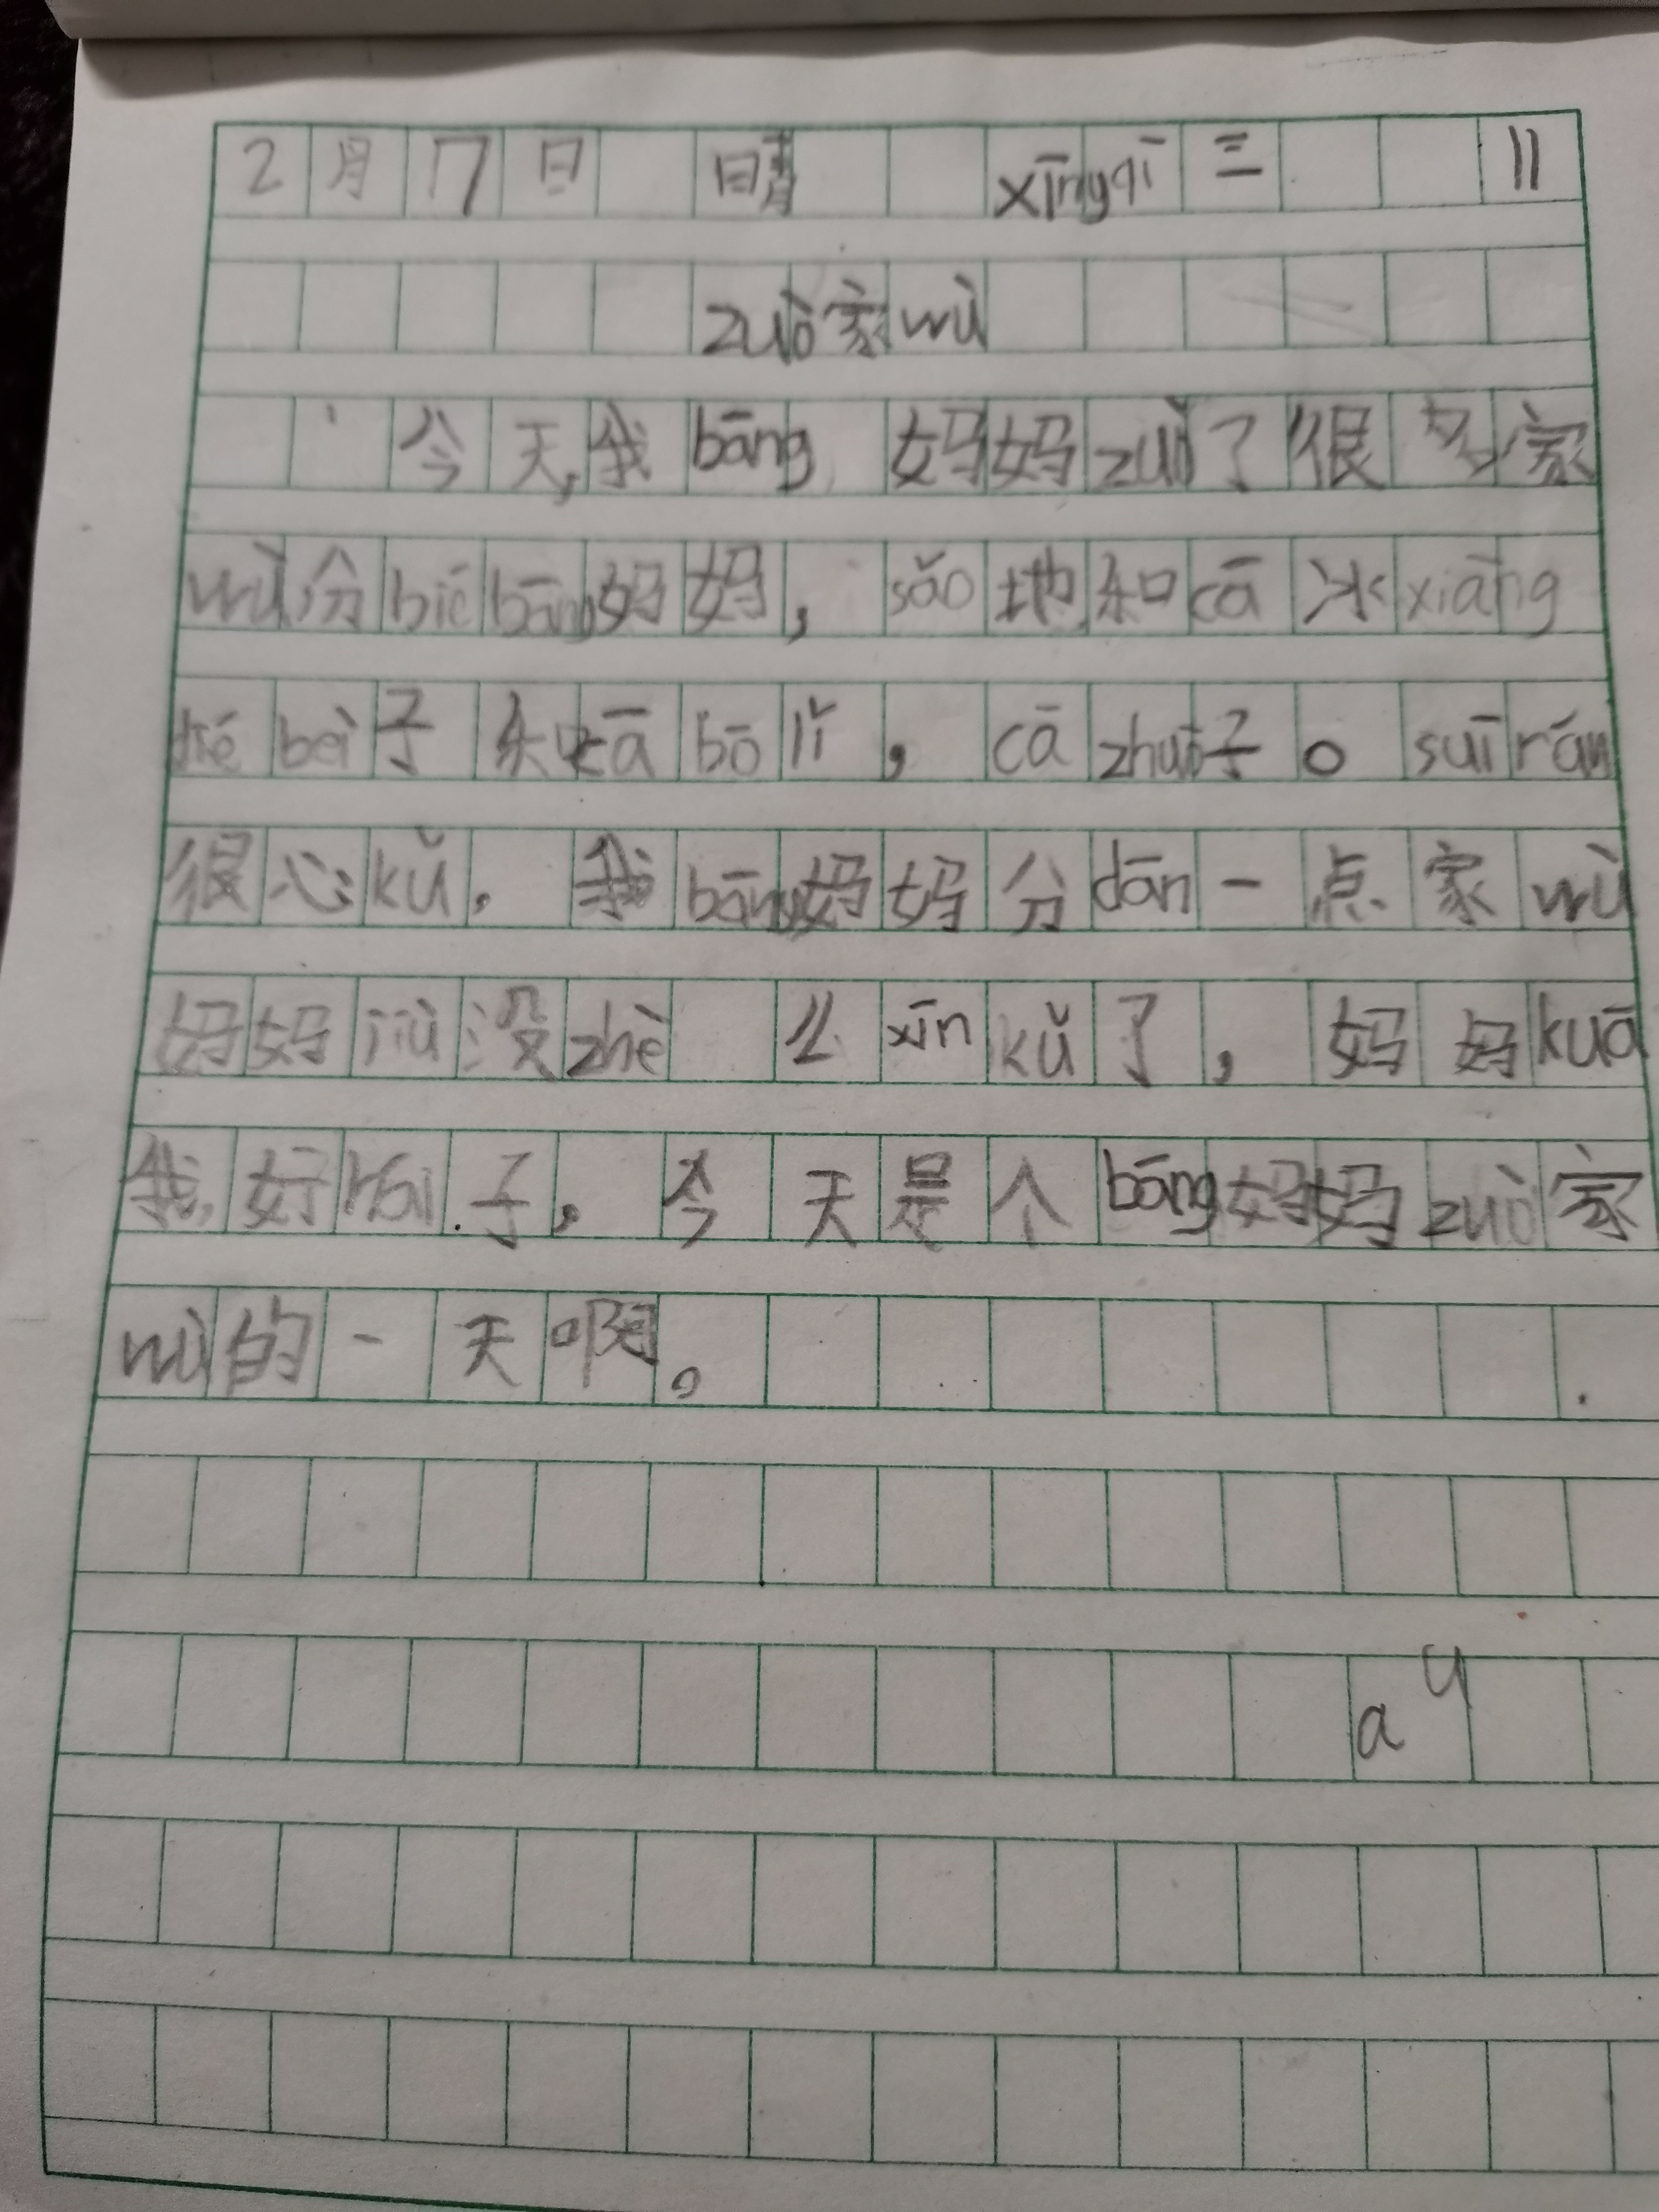 2月17日 晴 xīngqī三 11
zuò家wù
今天,我bāng妈妈zuò了很多家
wù分biébāng妈妈,sǎo地和cā冰xiāng
dié bèi子和cā bō lí,cā zhuō子。suī rán
很心kǔ,我bāng妈妈分dān一点家wù
妈妈jiù没zhè么xīn kǔ了,妈妈kuā
我好hái子,今天是个bāng妈妈zuò家
wù的一天啊。
a y